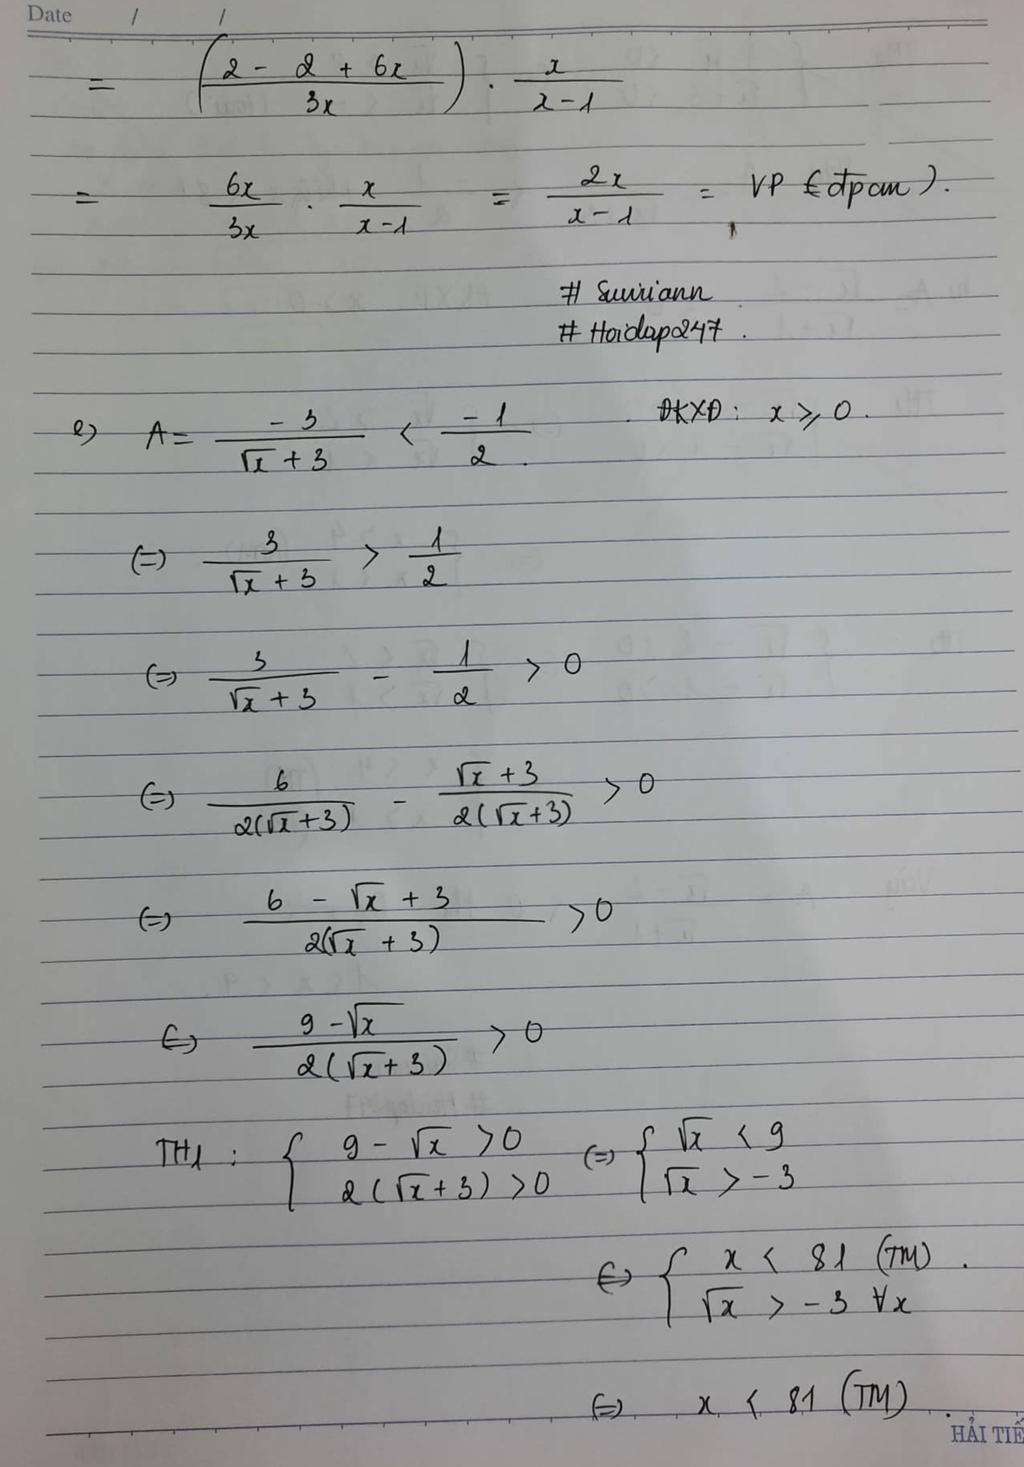 Date / /
= (2 - 2 + 6x / 3x) . x / x-1
= 6x / 3x . x / x-1 = 2x / x-1 = VP (đpcm).
# Suuriann
# Hoidap247.
e) A = -3 / √x + 3 < -1 / 2. ĐKXĐ: x ≥ 0.
(=) 3 / √x + 3 > 1 / 2
(=) 3 / √x + 3 - 1 / 2 > 0
(=) 6 / 2(√x+3) - √x + 3 / 2(√x+3) > 0
(=) 6 - √x + 3 / 2(√x + 3) > 0
(=) 9 - √x / 2(√x+3) > 0
TH1 : { 9 - √x > 0 (=) { √x < 9
2(√x+3) > 0 √x > -3
(=) { x < 81 (TM).
√x > -3 ∀x
(=) x < 81 (TM).
HẢI TIẾ